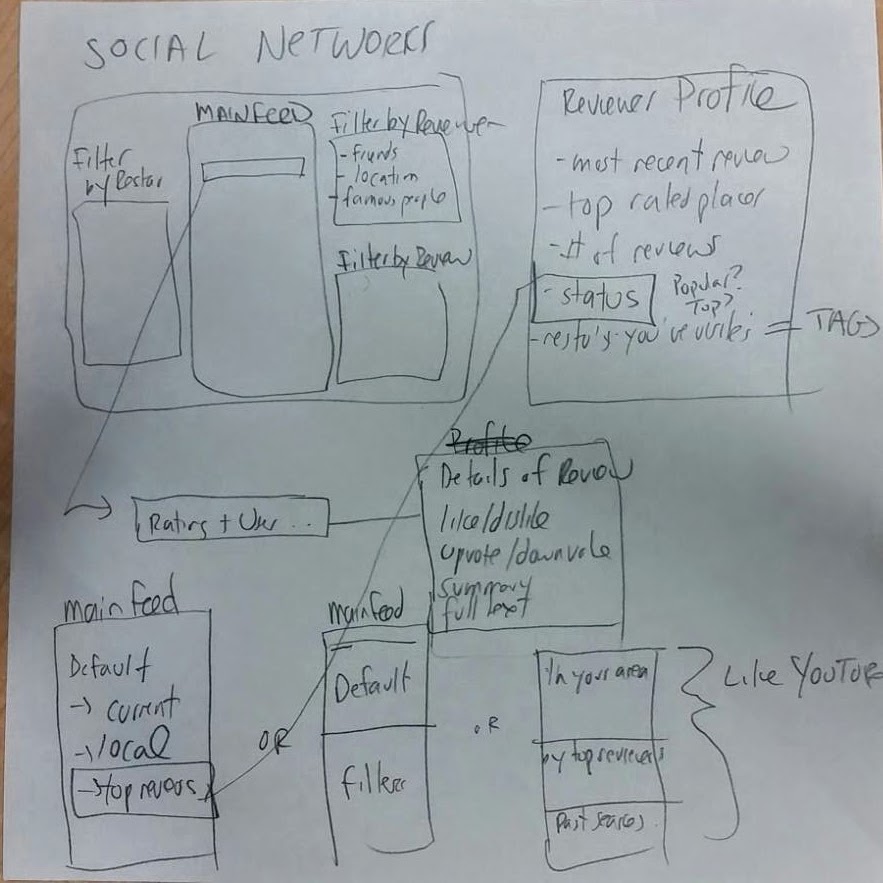 SOCIAL NETWORKS
MAIN FEED
Filter
by Restar
Filter by Reviewer
- friends
- location
- famous people
Filter by Review
Reviewer Profile
- most recent review
- top rated places
- # of reviews
- status
Popular?
Top?
- resto's you've = TAGS
Profile
Details of Review
like/dislike
upvote/downvote
summary
full text
Rating + User ..
main feed
Default
→ current
→ local
→ top reviews
OR
main feed
Default
filters
OR
In your area
by top reviewers
Past
Like YOUTUBE